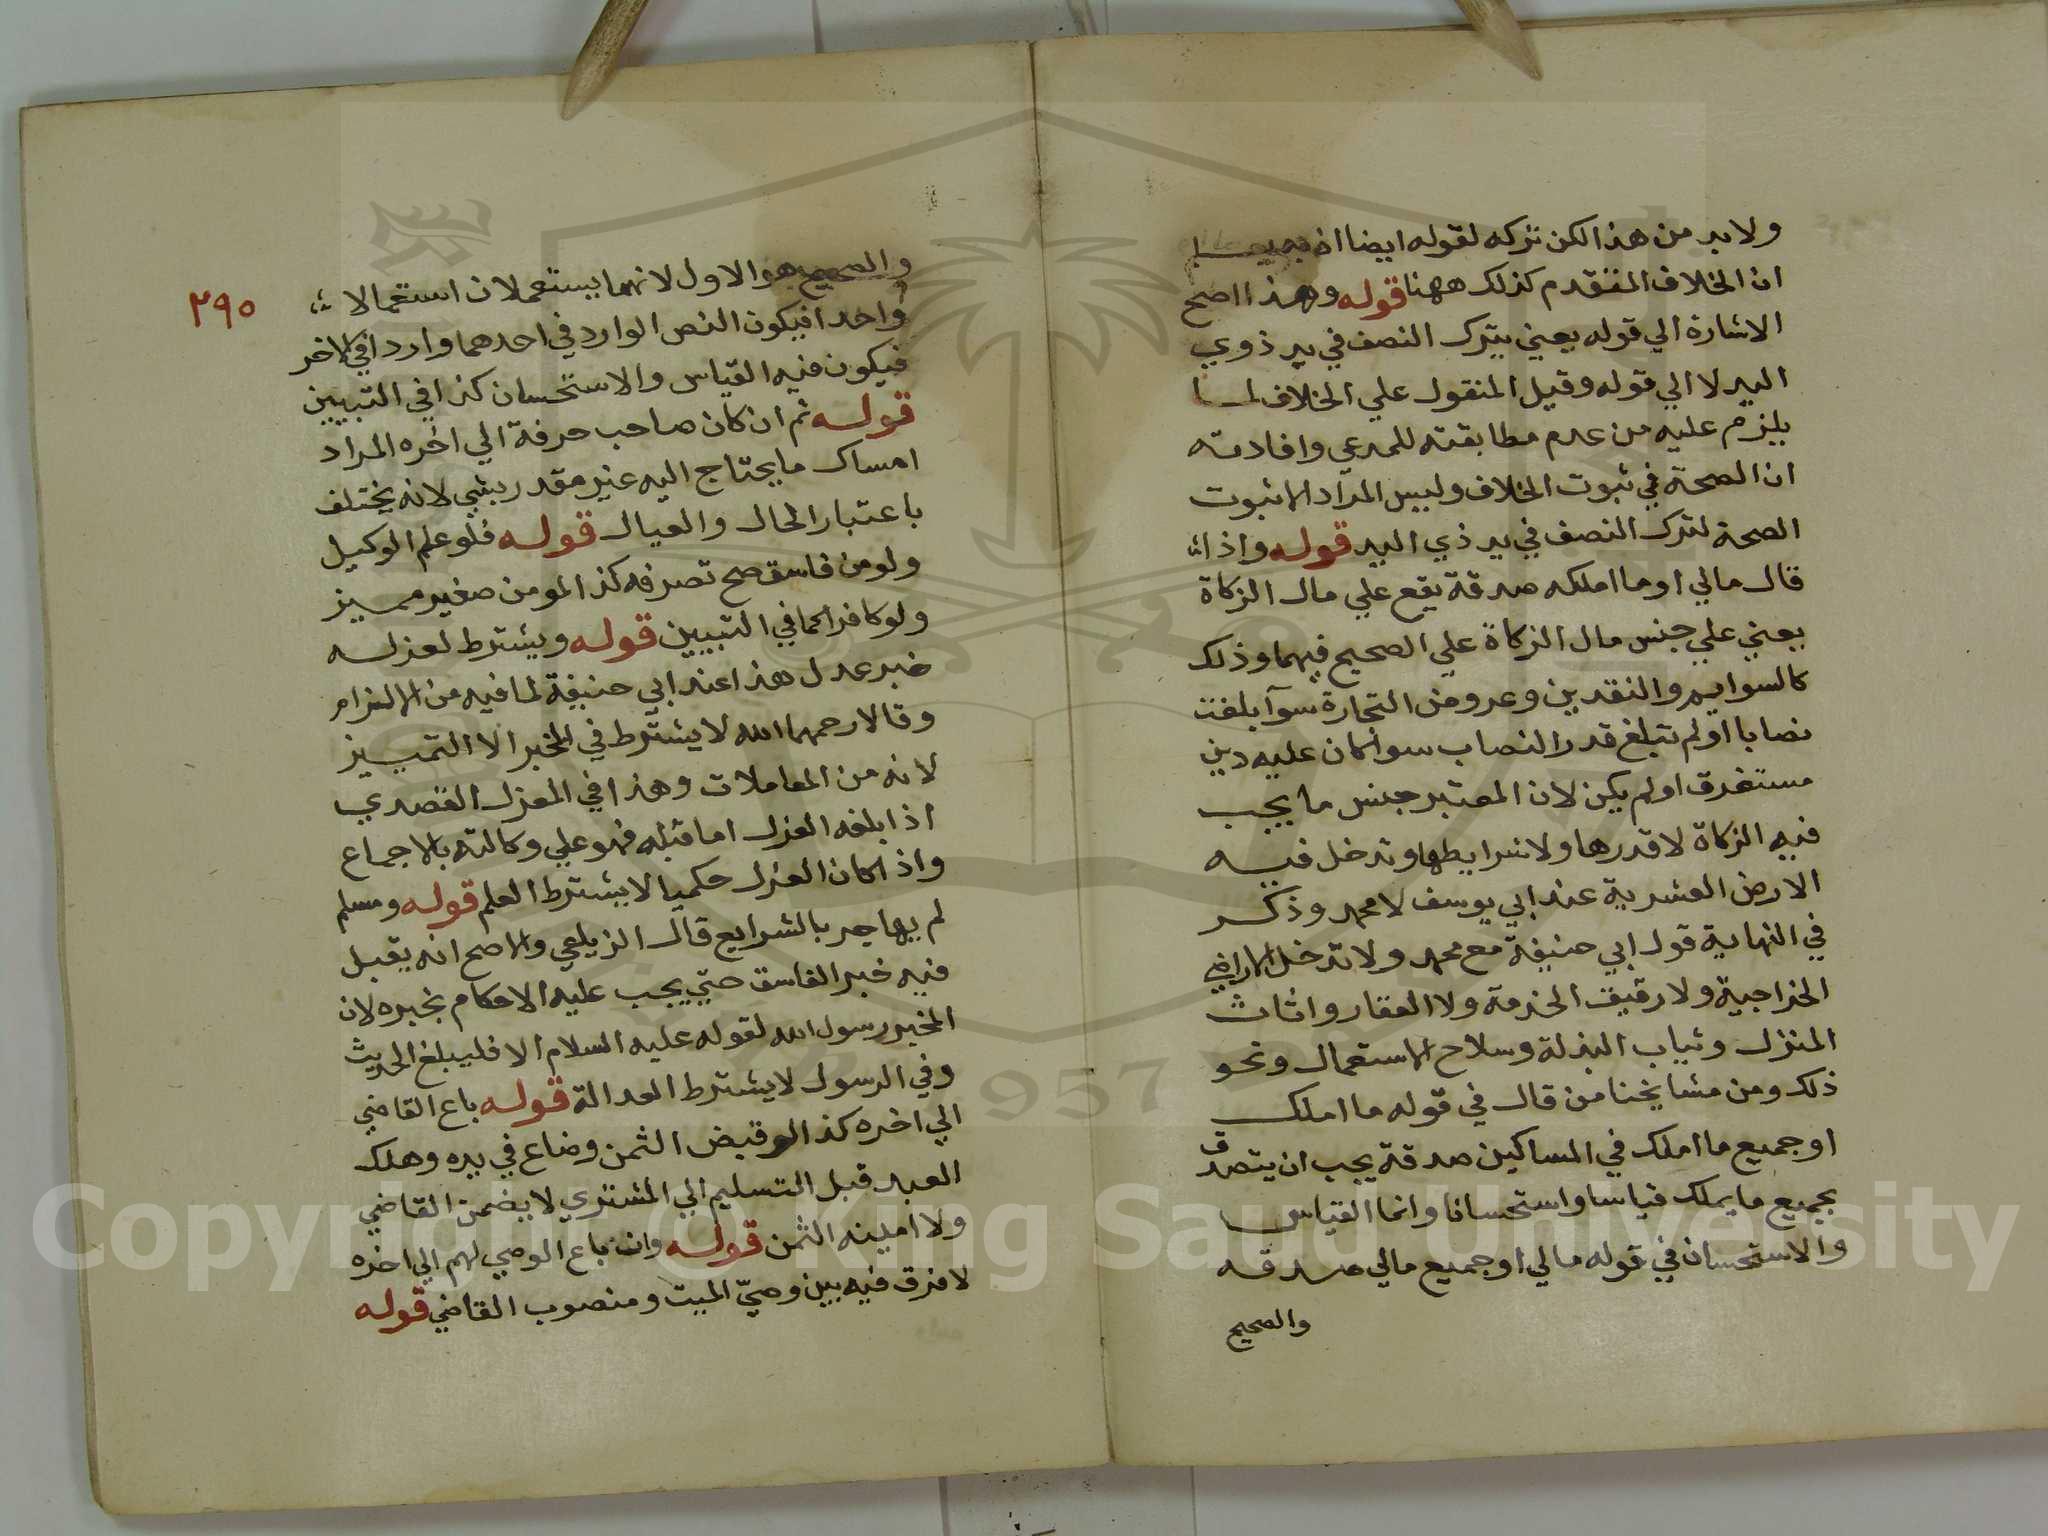 ولابد من هذا لكن تركه لقوله ايضا اذ به يعـلـ
ان الخلاف المتقدم كذلك ههنا قوله وهذا اصح
الاشارة الي قوله يعني يترك النصف في يد ذوي
اليد لا الي قوله وقيل المنقول علي الخلاف لما
يلزم عليه من عدم مطابقته للمدعي وافادته
ان الصحة في ثبوت الخلاف وليس المراد الا ثبوت
الصحة لترك النصف في يد ذي اليد قوله واذا
قال مالي او ما املكه صدقة يقع علي مال الزكاة
يعني علي جنس مال الزكاة علي الصحيح فيهما وذلك
كالسوايم والنقدين وعروض التجارة سوآ بلغت
نصابا او لم تبلغ قدر النصاب سوا كان عليه دين
مستغرق او لم يكن لان المعتبر جنس ما يجب
فيه الزكاة لا قدرها ولا شرايطها وتدخل فيه
الارض العشرية عند ابي يوسف لا محمد وذكر
في النهاية قول ابي حنيفة مع محمد ولا تدخل الاراضي
الخراجية ولا رقيق الخدمة ولا العقار واثاث
المنزل وثياب البذلة وسلاح الاستعمال ونحو
ذلك ومن مشايخنا من قال في قوله ما املك
او جميع ما املك في المساكين صدقة يجب ان يتصدق
بجميع ما يملك قياسا واستحسانا وانما القياس
والاستحسان في قوله مالي او جميع مالي صدقه
والصحيح
٢٩٥
والصحيح هو الاول لانهما يستعملان استعمالا
واحدا فيكون النص الوارد في احدهما واردا في الاخر
فيكون فيه القياس والاستحسان كذا في التبيين
قوله ثم ان كان صاحب حرفة الي اخره المراد
امساك ما يحتاج اليه غير مقدر بشي لانه يختلف
باعتبار الحال والعيال قوله فلو علم الوكيل
ولو من فاسق صح تصرفه كذا لو من صغير مميز
ولو كافرا كما في التبيين قوله ويشترط لعزله
خبر عدل هذا عند ابي حنيفة لما فيه من الالزام
وقالا رحمهما الله لا يشترط في المخبر الا التمييز
لانه من المعاملات وهذا في العزل القصدي
اذا بلغه العزل اما قبله فهو علي وكالته بالاجماع
واذا كان العزل حكميا لا يشترط العلم قوله ومسلم
لم يهاجر بالشرايع قال الزيلعي والاصح انه يقبل
فيه خبر الفاسق حتي يجب عليه الاحكام بخبره لان
المخبر رسول الله لقوله عليه السلام الا فليبلغ الحديث
وفي الرسول لا يشترط العدالة قوله باع القاضي
الي اخره كذا لو قبض الثمن وضاع في يده وهلك
العبد قبل التسليم الي المشتري لا يضمن القاضي
ولا امينه الثمن قوله وان باع الوصي لهم الي اخره
لا فرق فيه بين وصيّ الميت ومنصوب القاضي قوله
Copyright © King Saud University
1957